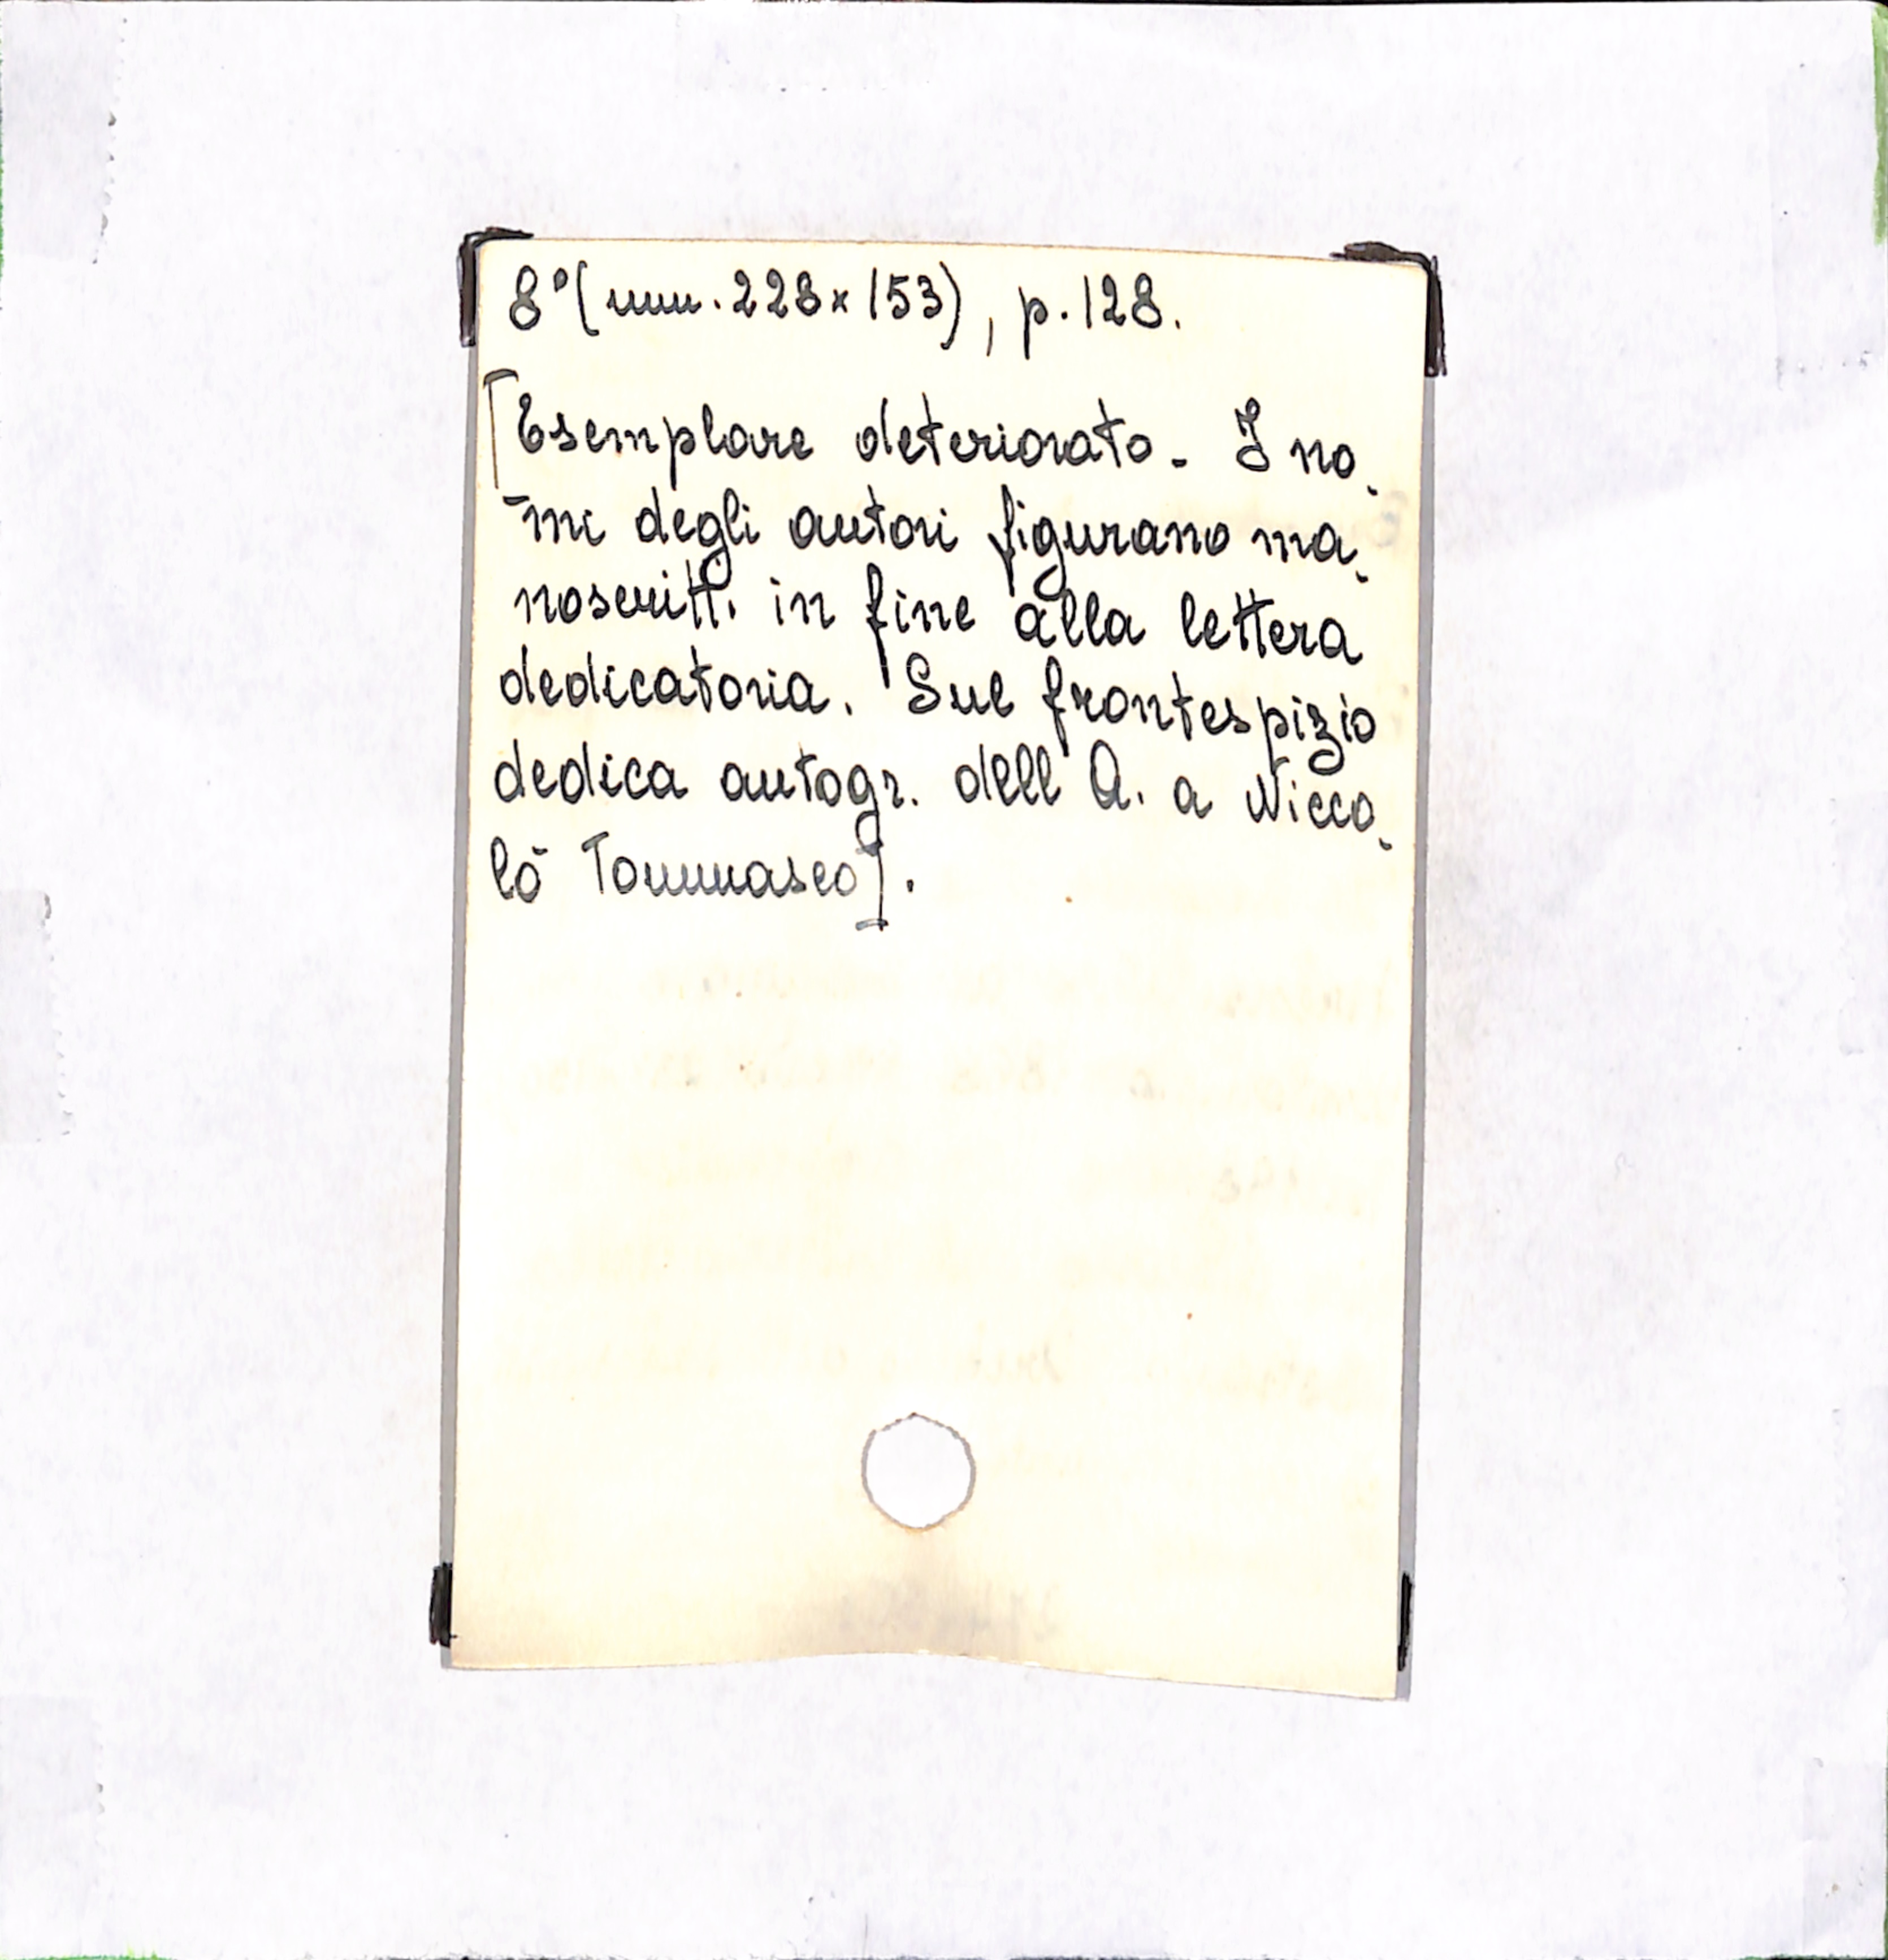 8° (mm. 228 x 153), p. 128.
[Esemplare deteriorato. I no-
mi degli autori figurano ma-
noscritti in fine alla lettera
dedicatoria. Sul frontespizio
dedica autogr. dell'A. a Nicco-
lò Tommaseo].